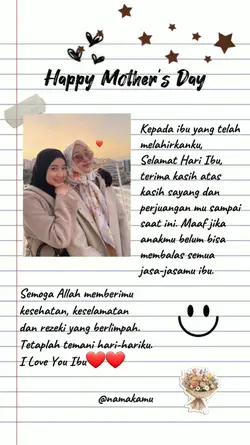 Happy Mother's Day
Kepada ibu yang telah
melahirkanku,
Selamat Hari Ibu,
terima kasih atas
kasih sayang dan
perjuangan mu sampai
saat ini. Maaf jika
anakmu belum bisa
membalas semua
jasa-jasamu ibu.
Semoga Allah memberimu
kesehatan, keselamatan
dan rezeki yang berlimpah.
Tetaplah temani hari-hariku.
I Love You Ibu❤️❤️
@namakamu